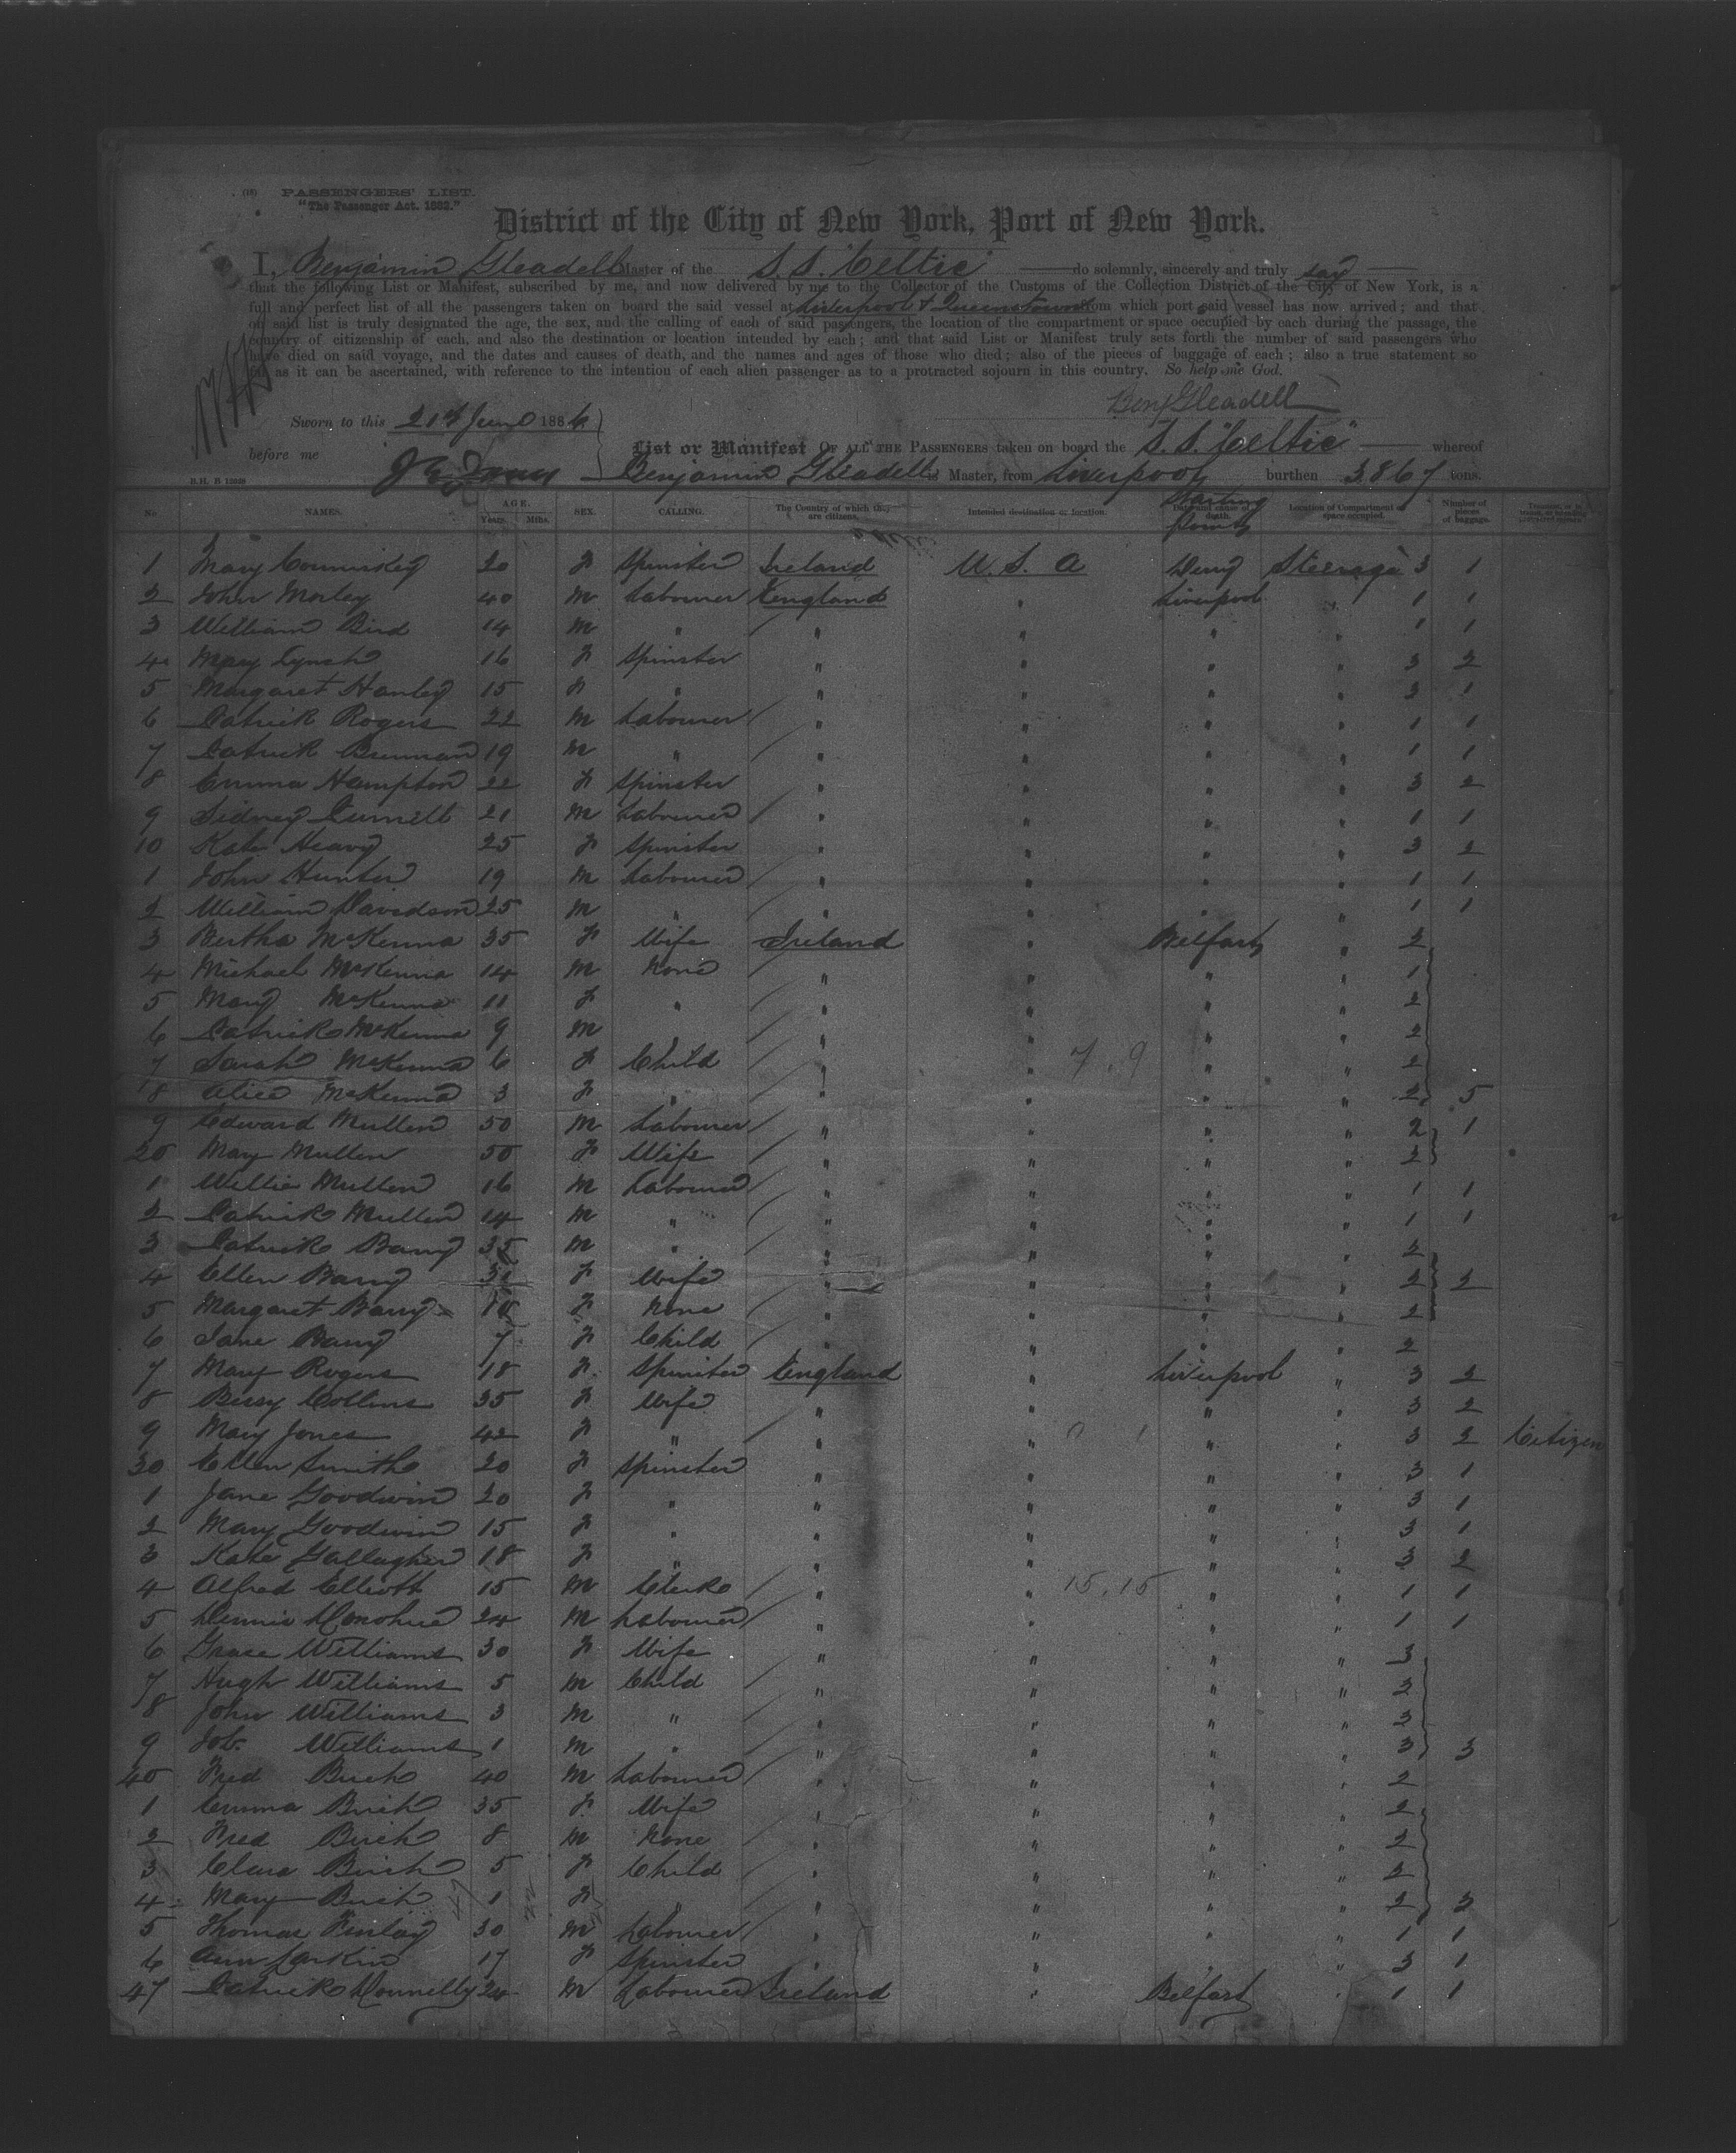 (18) PASSENGERS' LIST.
"The Passenger Act. 1882."
District of the City of New York, Port of New York.
I, Benjamin Gleadell Master of the S.S. "Celtic" do solemnly, sincerely and truly say
that the following List or Manifest, subscribed by me, and now delivered by me to the Collector of the Customs of the Collection District of the City of New York, is a
full and perfect list of all the passengers taken on board the said vessel at Liverpool & Queenstown from which port said vessel has now arrived; and that
on said list is truly designated the age, the sex, and the calling of each of said passengers, the location of the compartment or space occupied by each during the passage, the
country of citizenship of each, and also the destination or location intended by each; and that said List or Manifest truly sets forth the number of said passengers who
have died on said voyage, and the dates and causes of death, and the names and ages of those who died; also of the pieces of baggage of each; also a true statement so
far as it can be ascertained, with reference to the intention of each alien passenger as to a protracted sojourn in this country. So help me God.
Benj Gleadell
Sworn to this 21st June 1886
before me
List or Manifest OF ALL THE PASSENGERS taken on board the S.S. "Celtic" whereof
Benjamin Gleadell is Master, from Liverpool burthen 3867 tons.
B.H. B 12228
No. NAMES. AGE. Years. Mths. SEX. CALLING. The Country of which they are citizens. Intended destination or location. Date and cause of death. Starting Point Location of Compartment or space occupied. Number of pieces of baggage.
1 Mary Commiskey 20 F Spinster Ireland U.S.A Derry Steerage 3 1
2 John Morley 40 M Labourer England " Liverpool " 1 1
3 William Bird 14 M " " " " " 1 1
4 Mary Lynch 16 F Spinster " " " " 3 2
5 Margaret Hanley 15 F " " " " " 3 1
6 Patrick Rogers 22 M Labourer " " " " 1 1
7 Patrick Brennan 19 M " " " " " 1 1
8 Emma Hampton 22 F Spinster " " " " 3 2
9 Sidney 21 M Labourer " " " " 1 1
10 Kate Heavy 25 F Spinster " " " " 3 2
1 John Hunter 19 M Labourer " " " " 1 1
2 William Davidson 25 M " " " " " 1 1
3 Bertha McKenna 35 F Wife Ireland " Belfast " 2
4 Michael McKenna 14 M None " " " " 1
5 Mary McKenna 11 F " " " " " 2
6 Patrick McKenna 9 M " " " " 2
7 Sarah McKenna 6 F Child " " 7.9 " " 2
18 Alice McKenna 3 F " " " " " 2 5
9 Edward Mullen 50 M Labourer " " " " 2 1
20 Mary Mullen 50 F Wife " " " " 2
1 Willie Mullen 16 M Labourer " " " " 1 1
2 Patrick Mullen 14 M " " " " " 1 1
3 Patrick Barry 35 M " " " " " 2
4 Ellen Barry F Wife " " " " 2 2
5 Margaret Barry F None " " " " 2
6 Jane Barry 7 F Child " " " " 2
7 Mary Rogers 18 F Spinster England " Liverpool " 3 2
8 Bessy Collins 35 F Wife " " " " 3 2
9 Mary Jones 42 F " " " " " 3 2 Citizen
30 Ellen Smith 20 F Spinster " " " " 3 1
1 Jane Goodwin 20 F " " " " " 3 1
2 Mary Goodwin 15 F " " " " " 3 1
3 Kate Gallagher 18 F " " " " " 3 2
4 Alfred Elliott 15 M Clerk " " 15.15 " " 1 1
5 Dennis Donohue 24 M Labourer " " " " 1 1
6 Grace Williams 30 F Wife " " " " 3
7 Hugh Williams 5 M Child " " " " 3
8 John Williams 3 M " " " " " 3
9 Job. Williams 1 M " " " " " 3 3
40 Fred Birch 40 M Labourer " " " " 2
1 Emma Birch 35 F Wife " " " " 2
2 Fred Birch 8 M None " " " " 2
3 Clara Birch 5 F Child " " " " 2
4 Mary Birch 1 F " " " " " 2 3
5 Thomas Finlay 30 M Labourer " " " " 1 1
6 Ann Larkin 17 F Spinster " " " " 3 1
47 Patrick Donnelly 24 M Labourer Ireland " Belfast " 1 1